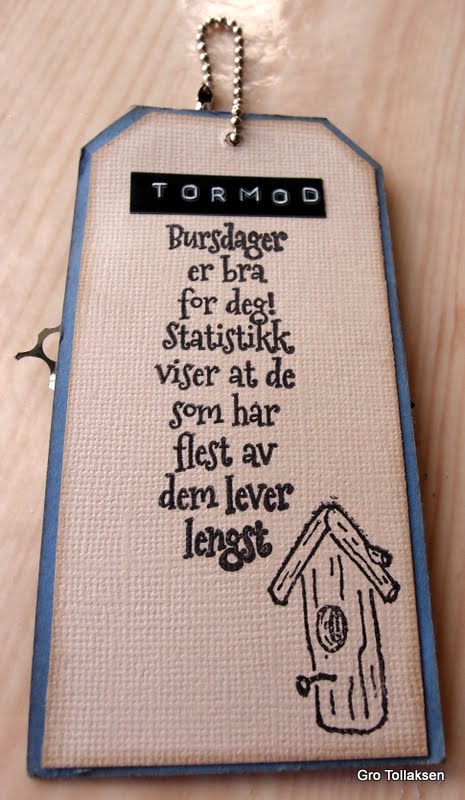 TORMOD
Bursdager
er bra
for deg!
Statistikk
viser at de
som har
flest av
dem lever
lengst
Gro Tollaksen